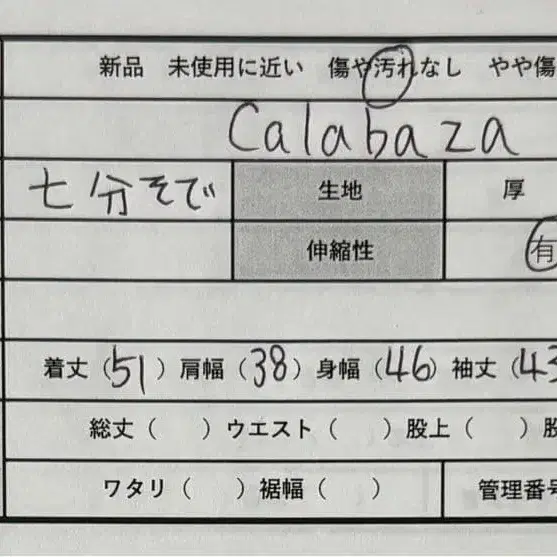 新品 未使用に近い 傷や汚れなし やや傷
Calabaza
七分そで 生地 厚
伸縮性 有
着丈(51)肩幅(38)身幅(46)袖丈(43
総丈( )ウエスト( )股上( )股
ワタリ( )裾幅( ) 管理番号